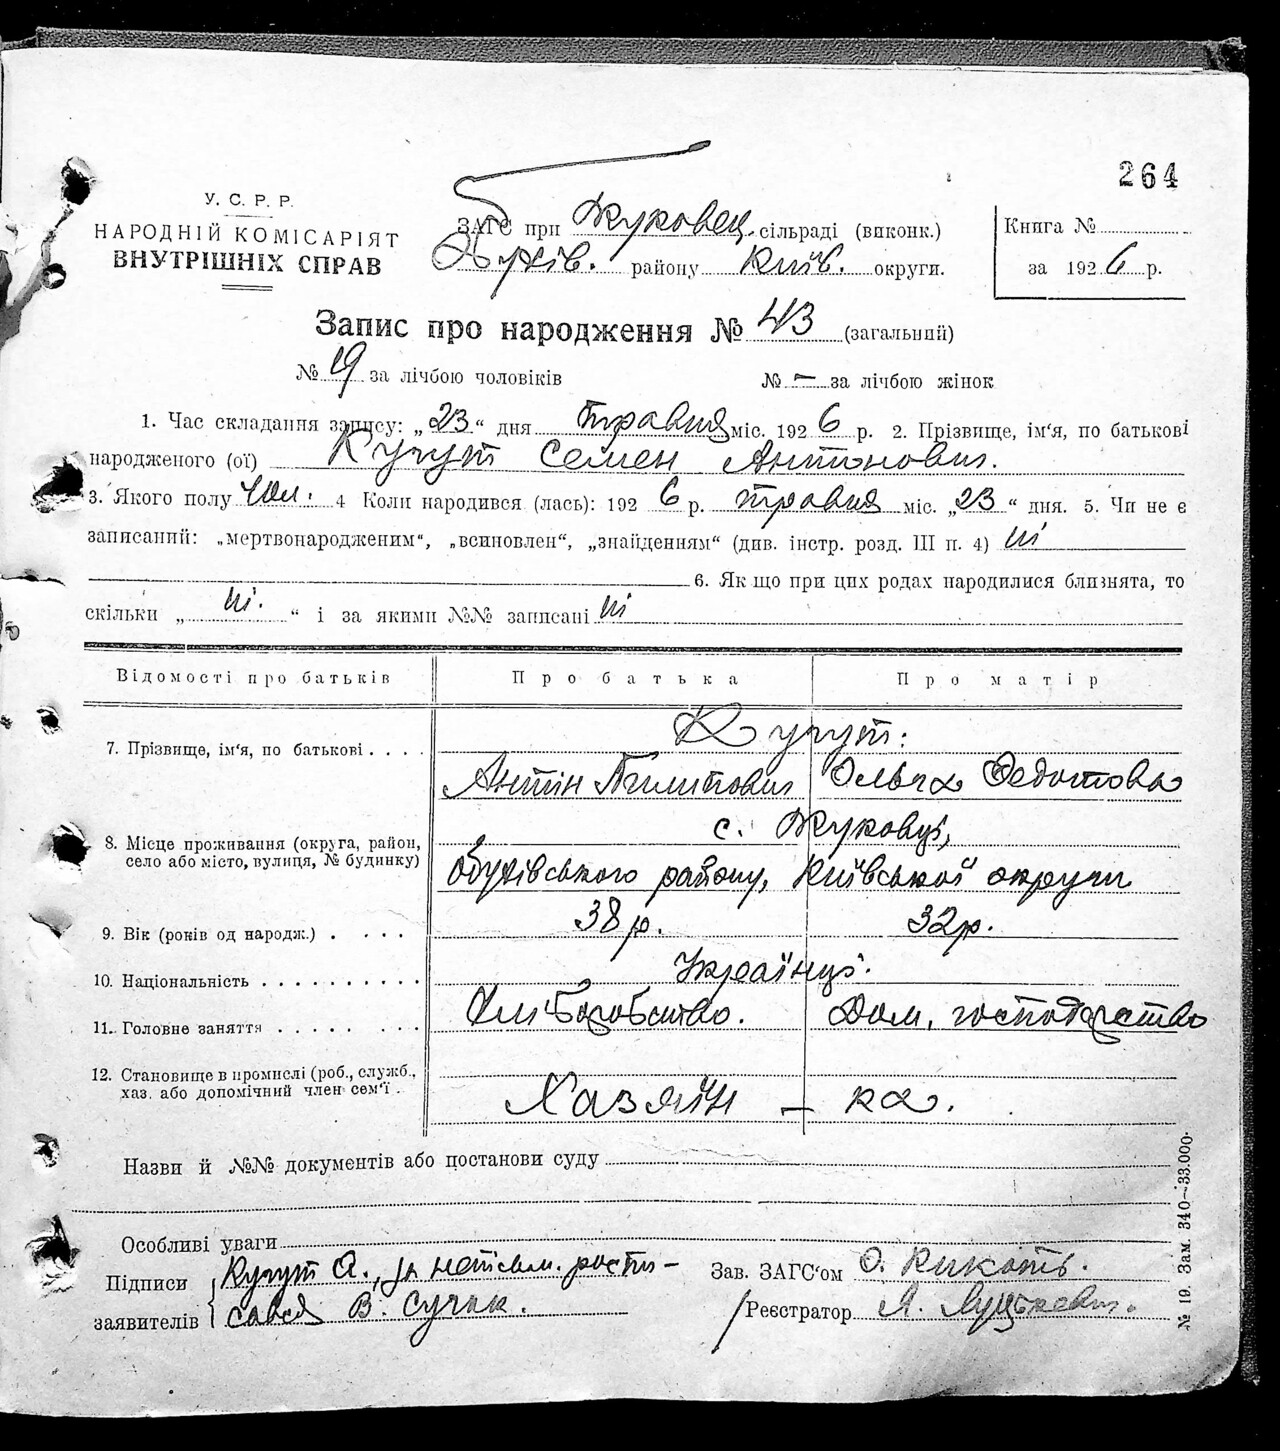 264
У. С. Р. Р.
НАРОДНІЙ КОМІСАРІЯТ
ВНУТРІШНІХ СПРАВ
ЗАГС при Жуковец. сільраді (виконк.)
Обухів. району Київ. округи.
Книга №
за 1926 р.
Запис про народження № 43 (загальний)
№ 19 за лічбою чоловіків № – за лічбою жінок
1. Час складання запису: „23“ дня травня міс. 1926 р. 2. Прізвище, ім'я, по батькові
народженого (ої) Кучут Семен Антонович.
3. Якого полу Чол. 4 Коли народився (лась): 1926 р. травня міс. „23“ дня. 5. Чи не є
записаний: „мертвонародженим“, „всиновлен“, „знайденням“ (див. інстр. розд. III п. 4) ні
6. Якщо при цих родах народилися близнята, то
скільки „ні.“ і за якими №№ записані ні
Відомості про батьків Про батька Про матір
7. Прізвище, ім'я, по батькові . . . . Кучут:
Антін Пилипович Ольга Федотовна
8. Місце проживання (округа, район, с. Жуковці,
село або місто, вулиця, № будинку) Обухівського району, Київської округи
9. Вік (років од народж.) . . . . 38 р. 32 р.
10. Національність . . . . . . . . . . Українці.
11. Головне заняття . . . . . . . . Хліборобство. Дом. господарство
12. Становище в промислі (роб., служб.,
хаз. або допомічний член сем'ї . Хазяїн – ка.
Назви й №№ документів або постанови суду
Особливі уваги
Підписи Кучут А., за неписьм. розпи-
заявителів сався В.
Зав. ЗАГС'ом О.
Реєстратор
№ 19. Зам. 340—33.000.